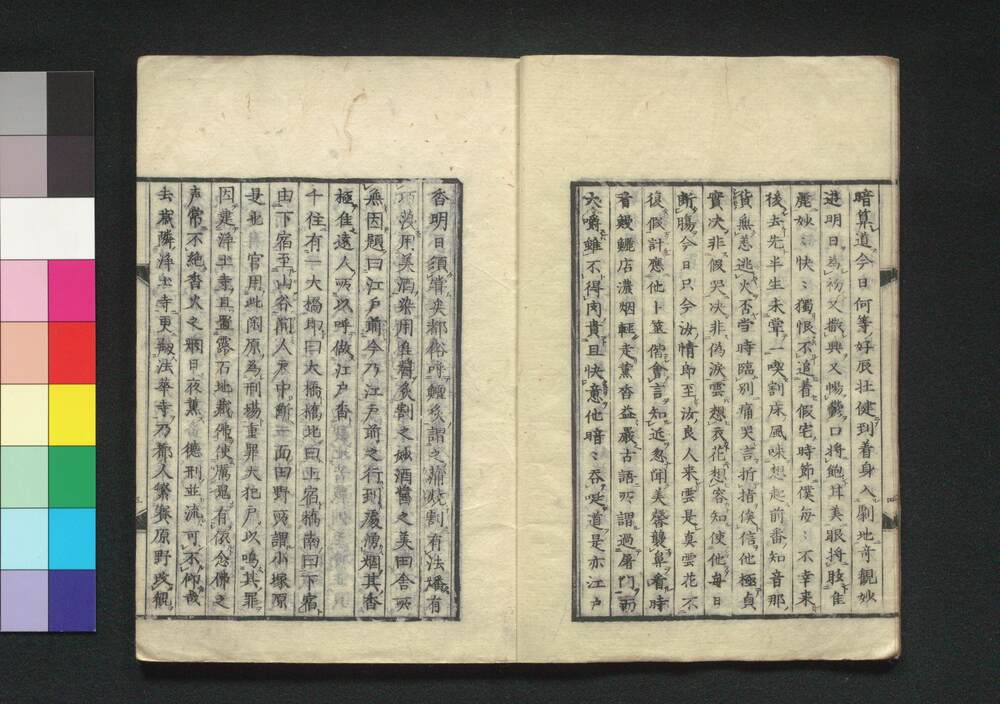 暗算道今日何等好辰壮健到着身入劇地奇観妙
遊明日為初又撒興又暢欝口将飽耳美眼将肢隹
麗妙〻快〻獨恨不追着假宅時節僕毎〻不幸来
後去先半生未掌一喫割床風味想起前番知音那
貨無恙逃火否當時臨別痛哭言折指俟信他極貞
實决非假哭决非偽涙雲想衣花想容知使他毎日
断膓今日只今汝情郎至汝良人来雲是真雲花不
復假計應他卜筮偕會言知近忽聞美馨襲鼻看時
看鰻鱺店濃烟輕走薫香益嚴古語所謂過屠門而
大嚼雖不得肉貴且快意他暗〻呑唾道是亦江戸
香明日須續矣都俗呼鰻炙謂之蒲焼割有法燔有
巧溌用美酒染用真醤炙割之妙酒醤之美田舎所
無因題曰江戸前今乃江戸前之行到處湧烟其香
極隹遠人所以呼做江戸香
千住有一大橋即曰大橋橋北曰上宿橋南曰下宿
由下宿至山谷間人家中断一面田野所謂小塚原
是也 官用此閑原為刑場重罪大犯尸以鳴其罪
因建浄土寺且置露石地蔵佛使厲鬼有依念佛之
声常不絶香火之烟日夜薫 徳刑並流可不仰哉
去歳隣浄土寺更
法華寺乃都人繁賽原野改観